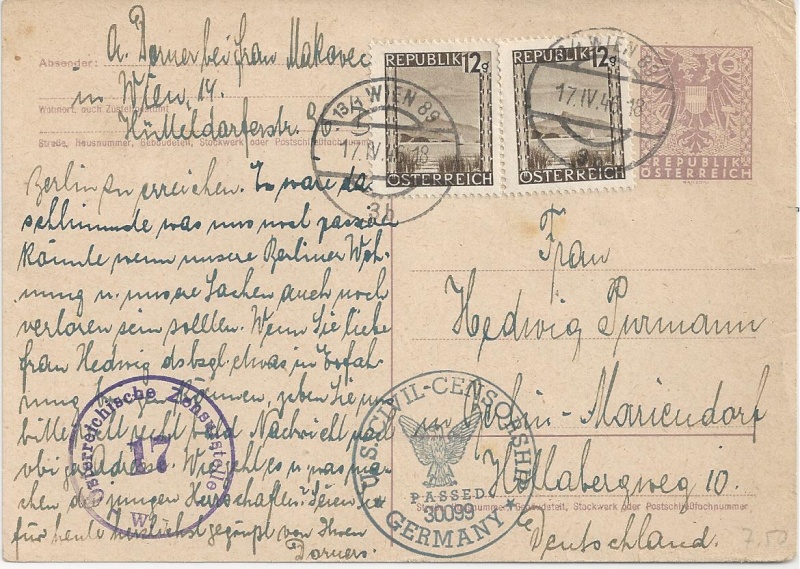 Absender: A. Dorner bei Frau Makovec
in Wien, 14.
Wohnort, auch Zustellpostamt
Hütteldorferstr.
Straße, Hausnummer, Gebäudeteil, Stockwerk oder Postschließfachnummer
REPUBLIK 12g
ÖSTERREICH
REPUBLIK 12g
ÖSTERREICH
REPUBLIK
ÖSTERREICH
13/4 WIEN 89
17.IV.46.18
3b
WIEN 89
17.IV.46.18
Berlin zu erreichen. Es wäre das
schlimmste was uns noch passieren
könnte wenn unsere Berliner Woh-
nung u. unsere Sachen auch noch
verloren sein sollten. Wenn Sie liebe
Frau Hedwig dsbzgl. etwas in Erfah-
rung bringen können, geben Sie uns
bitte recht bald Nachricht nach
obiger Adresse. Wie geht es u. was ma-
chen die jungen Herrschaften? Seien Sie
für heute herzlichst gegrüßt von Ihren
Dorners.
Frau
Hedwig Purmann
in Berlin-Mariendorf
Hollabergweg 10.
Straße, Hausnummer, Gebäudeteil, Stockwerk oder Postschließfachnummer
Deutschland.
Österreichische Zensurstelle
17
W
U.S. CIVIL-CENSORSHIP
PASSED
30099
GERMANY
7.50